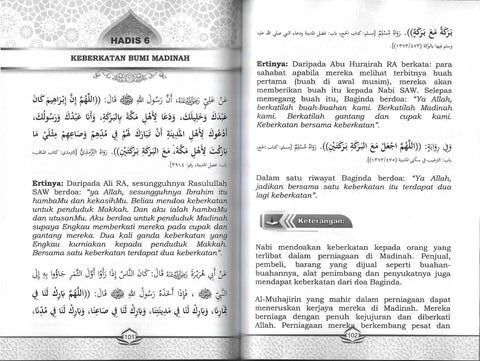 HADIS 6
KEBERKATAN BUMI MADINAH
عَنْ عَلِيٍّ، أَنَّ رَسُولَ اللهِ ﷺ قَالَ: ((اللَّهُمَّ إِنَّ إِبْرَاهِيمَ كَانَ
عَبْدَكَ وَخَلِيلَكَ، دَعَاكَ لِأَهْلِ مَكَّةَ بِالْبَرَكَةِ، وَأَنَا عَبْدُكَ وَرَسُولُكَ،
أَدْعُوكَ لِأَهْلِ الْمَدِينَةِ أَنْ تُبَارِكَ لَهُمْ فِي مُدِّهِمْ وَصَاعِهِمْ مِثْلَيْ مَا
بَارَكْتَ لِأَهْلِ مَكَّةَ، مَعَ الْبَرَكَةِ بَرَكَتَيْنِ)). رَوَاهُ التِّرْمِذِيُّ
Ertinya: Daripada Ali RA, sesungguhnya Rasulullah
SAW berdoa: "ya Allah, sesungguhnya Ibrahim itu
hambaMu dan kekasihMu. Beliau mendoa keberkatan
untuk penduduk Makkah. Dan aku ialah hambaMu dan
utusanMu. Aku berdoa untuk penduduk Madinah
supaya Engkau memberkati mereka pada cupak dan
gantang mereka. Dua kali ganda keberkatan yang
Engkau kurniakan kepada penduduk Makkah.
Bersama satu keberkatan terdapat dua keberkatan".
عَنْ أَبِي هُرَيْرَةَ، قَالَ: كَانَ النَّاسُ إِذَا رَأَوْا أَوَّلَ الثَّمَرِ جَاءُوا بِهِ إِلَى
النَّبِيِّ ﷺ، فَإِذَا أَخَذَهُ رَسُولُ اللهِ ﷺ قَالَ: ((اللَّهُمَّ بَارِكْ لَنَا فِي
ثَمَرِنَا، وَبَارِكْ لَنَا فِي مَدِينَتِنَا، وَبَارِكْ لَنَا فِي صَاعِنَا، وَبَارِكْ لَنَا فِي مُدِّنَا،
101
بَرَكَةً مَعَ بَرَكَةٍ)). رَوَاهُ مُسْلِمٌ [مسلم، كتاب الحج، باب: فضل المدينة ودعاء النبي صلى الله عليه
Ertinya: Daripada Abu Hurairah RA berkata: para
sahabat apabila mereka melihat terbitnya buah
pertama (buah di awal musim), mereka akan
memberikan buah itu kepada Nabi SAW. Selepas
memegang buah itu, Baginda berdoa: "Ya Allah,
berkatilah buah-buahan kami. Berkatilah Madinah
kami. Berkatilah gantang dan cupak kami.
Keberkatan bersama keberkatan".
وَفِي رِوَايَةٍ: ((اللَّهُمَّ اجْعَلْ مَعَ الْبَرَكَةِ بَرَكَتَيْنِ)). رَوَاهُ مُسْلِمٌ
Dalam satu riwayat Baginda berdoa: "Ya Allah,
jadikan bersama satu keberkatan itu terdapat dua
lagi keberkatan".
Keterangan:
Nabi mendoakan keberkatan kepada orang yang
terlibat dalam perniagaan di Madinah. Penjual,
pembeli, barang yang dijual seperti buahan-
buahannya, alat penimbang dan penyukatnya juga
mendapat keberkatan dari doa Baginda.
Al-Muhajirin yang mahir dalam perniagaan dapat
meneruskan kerjaya mereka di Madinah. Mereka
berniaga dengan penuh kejujuran dan diberkati
Allah. Perniagaan mereka berkembang pesat dan
102